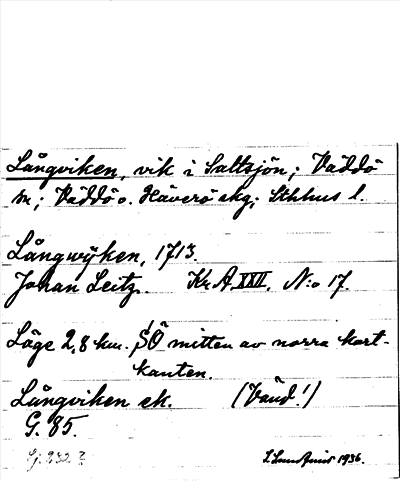 Långviken, vik i Saltsjön; Väddö
sn; Väddö o. Häverö skg; Sthlms l.
Långwÿken, 1713.
Johan Leitz. Kr. A. XXII. N:o 17.
Läge 2,8 km. SÖ mitten av norra kart-
kanten.
Långviken ek. (Vänd!)
G. 85.
Gj. 932 ?
1936.